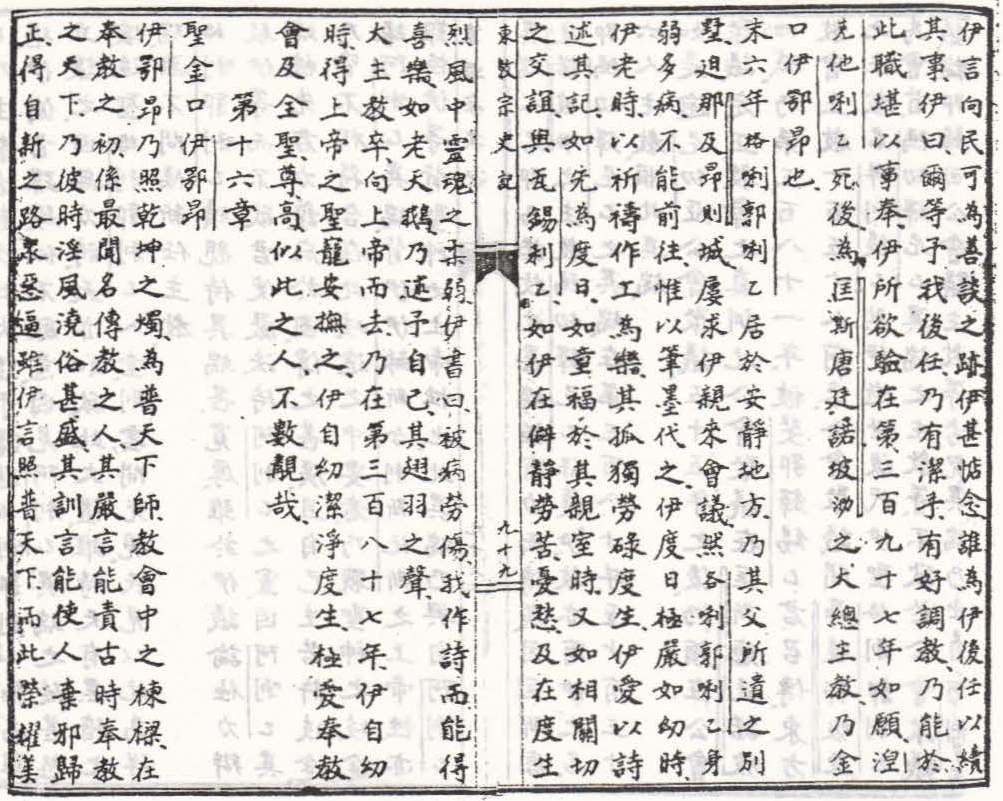 伊言向民可為善談之跡伊甚惦念誰為伊後任以續
其事伊曰爾等予我後任乃有潔手有好調教乃能於
此職堪以事奉伊所欲驗在第三百九十七年如願湼
克他唎死後為匡斯唐廷諾坡勒之大總主教乃金
口伊鄂昂也
末六年格唎郭唎乙居於安靜地方乃其父所遺之別
墅迫那及昂則城屢求伊親來會議然各唎郭唎乙身
弱多病不能前往惟以筆墨代之伊度日極嚴如幼時
伊老時以祈禱作工為樂其孤獨勞碌度生伊愛以詩
述其記如先為度日如童福於其親室時又如相關切
之交誼與瓦錫利乙如伊在僻靜勞苦憂愁及在度生
東教宗史記
九十九
烈風中靈魂之柔弱伊書曰被病勞傷我作詩而能得
喜樂如老天鵝乃述予自己其翅羽之聲
大主教卒向上帝而去乃在第三百八十七年伊自幼
時得上帝之聖寵安撫之伊自幼潔淨度生極愛奉教
會及全聖尊高似此之人不數覯哉
第十六章
聖金口伊鄂昂
伊鄂昂乃照乾坤之燭為普天下師教會中之棟樑在
奉教之初係最聞名傳教之人其嚴言能責古時奉教
之天下乃彼時淫風澆俗甚盛其訓言能使人棄邪歸
正得自新之路衆惡逼雖伊言照普天下而此榮耀美